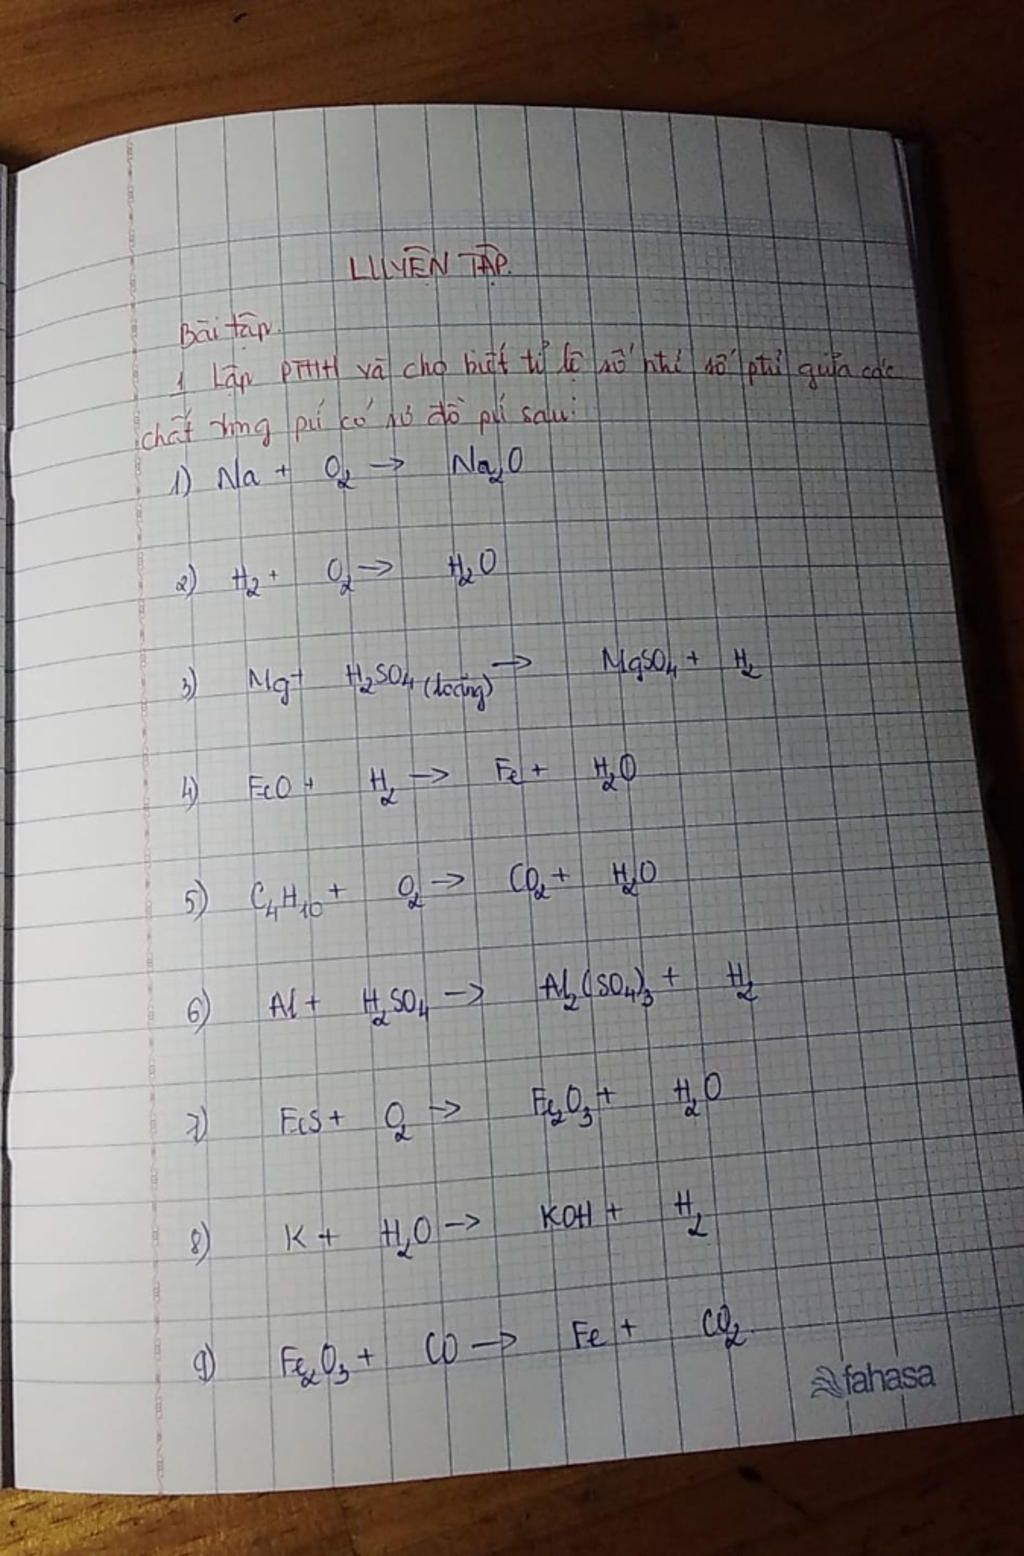 LUYỆN TẬP.
Bài tập.
1 Lập PTHH và cho biết tỉ lệ số ntử số ptử giữa các
chất trong pứ có sơ đồ pứ sau:
1) Na + O₂ → Na₂O
2) H₂ + O₂ → H₂O
3) Mg + H₂SO₄ (loãng) → MgSO₄ + H₂
4) FeO + H₂ → Fe + H₂O
5) C₄H₁₀ + O₂ → CO₂ + H₂O
6) Al + H₂SO₄ → Al₂(SO₄)₃ + H₂
7) FeS + O₂ → Fe₂O₃ + H₂O
8) K + H₂O → KOH + H₂
9) Fe₂O₃ + CO → Fe + CO₂
fahasa